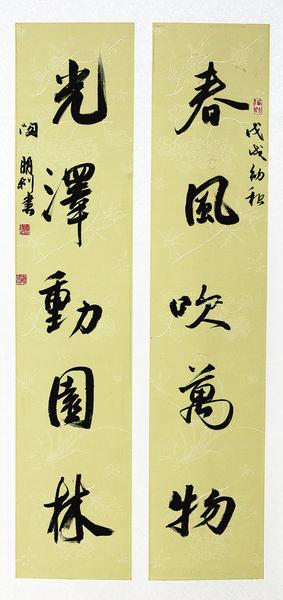 春風吹萬物
戊戌初秋
光澤動園林
明利書